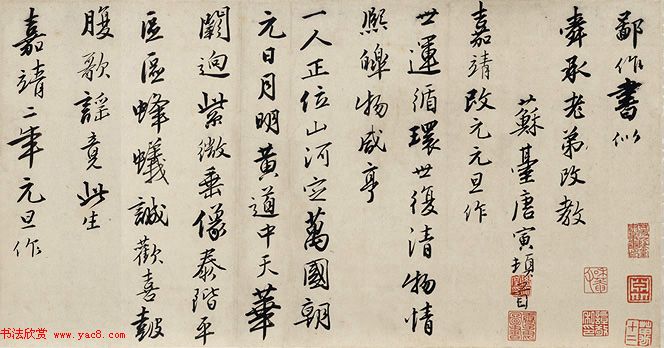 鄙作書似
舜承老弟改教
蘇臺唐寅頓首
嘉靖改元元旦作
世運循環世復清物情
熙皞物咸亨
一人正位山河定萬國朝
元日月明黃道中天華
闕迥紫微垂像泰階平
區區蜂蟻誠歡喜鼓
腹歌謡竟此生
嘉靖二年元旦作
书法欣赏
www.yac8.com